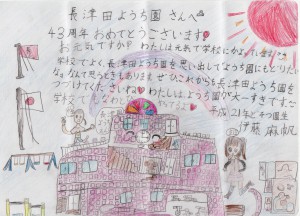 長津田ようち園さんへ
43周年おめでとうございます!
お元気ですか? わたしはきれて学校にかよっています。
学校でよく、長津田ようち園を思い出してようち園にもどりたい
なぁなんて思うときもあります ぜひこれからも長津田ようち園を
つづけてくださいね わたしは長津田ようち園が大〜すきです
平成21年どそつ園生
伊藤麻帆